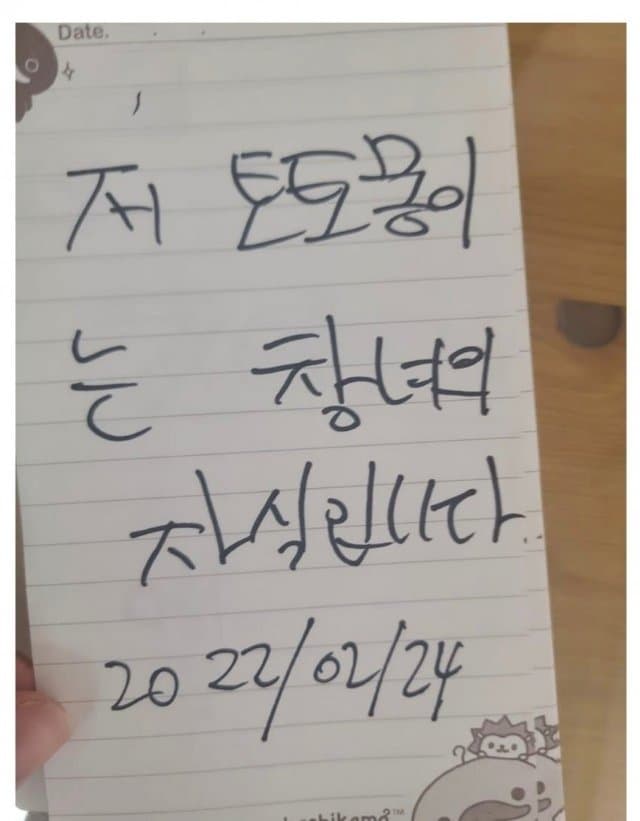 Date.
저 토토몽이
는 창녀의
자식입니다..
2022/02/24